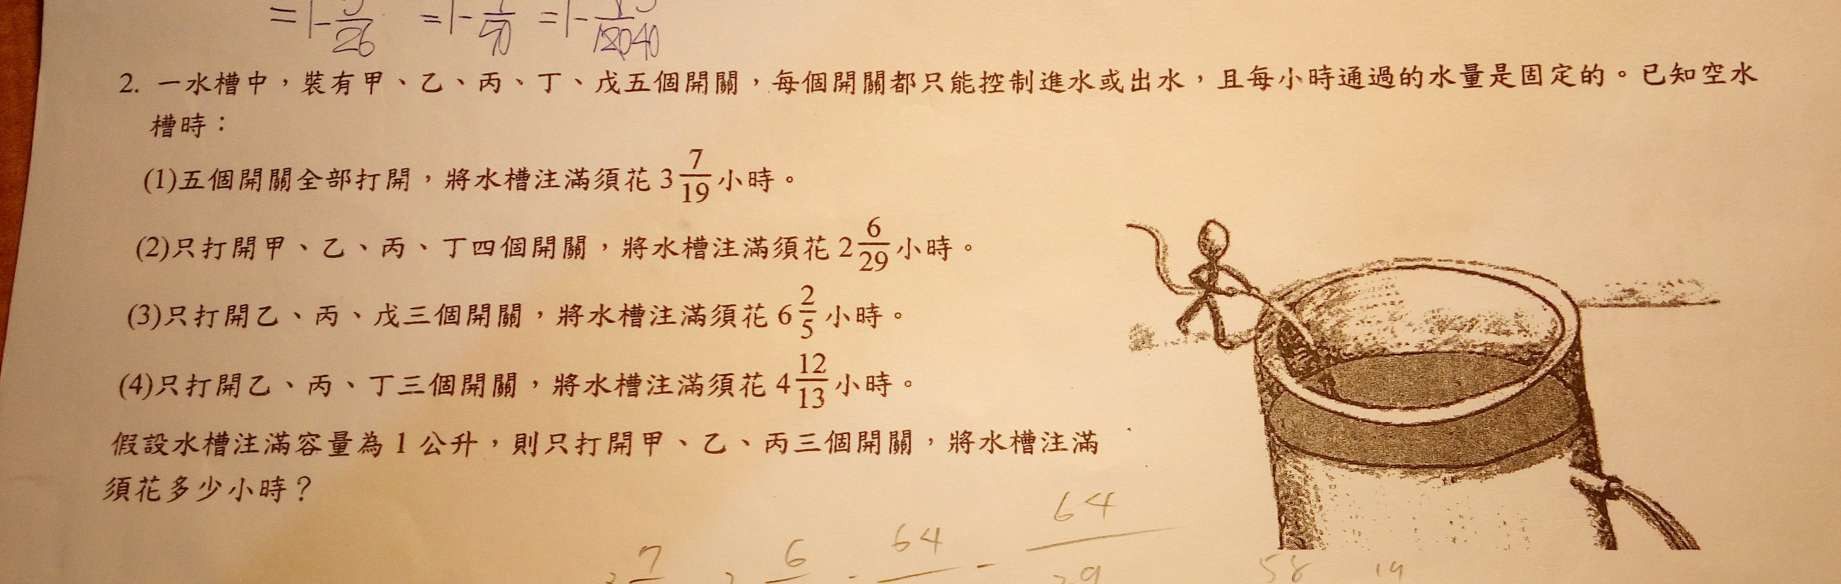 2. 一水槽中，裝有甲、乙、丙、丁、戊五個開關，每個開關都只能控制進水或出水，且每小時通過的水量是固定的。已知空水
槽時：
(1)五個開關全部打開，將水槽注滿須花 3 7/19 小時。
(2)只打開甲、乙、丙、丁四個開關，將水槽注滿須花 2 6/29 小時。
(3)只打開乙、丙、戊三個開關，將水槽注滿須花 6 2/5 小時。
(4)只打開乙、丙、丁三個開關，將水槽注滿須花 4 12/13 小時。
假設水槽注滿容量為 1 公升，則只打開甲、乙、丙三個開關，將水槽注滿
須花多少小時？
7 6 64 64
58 19